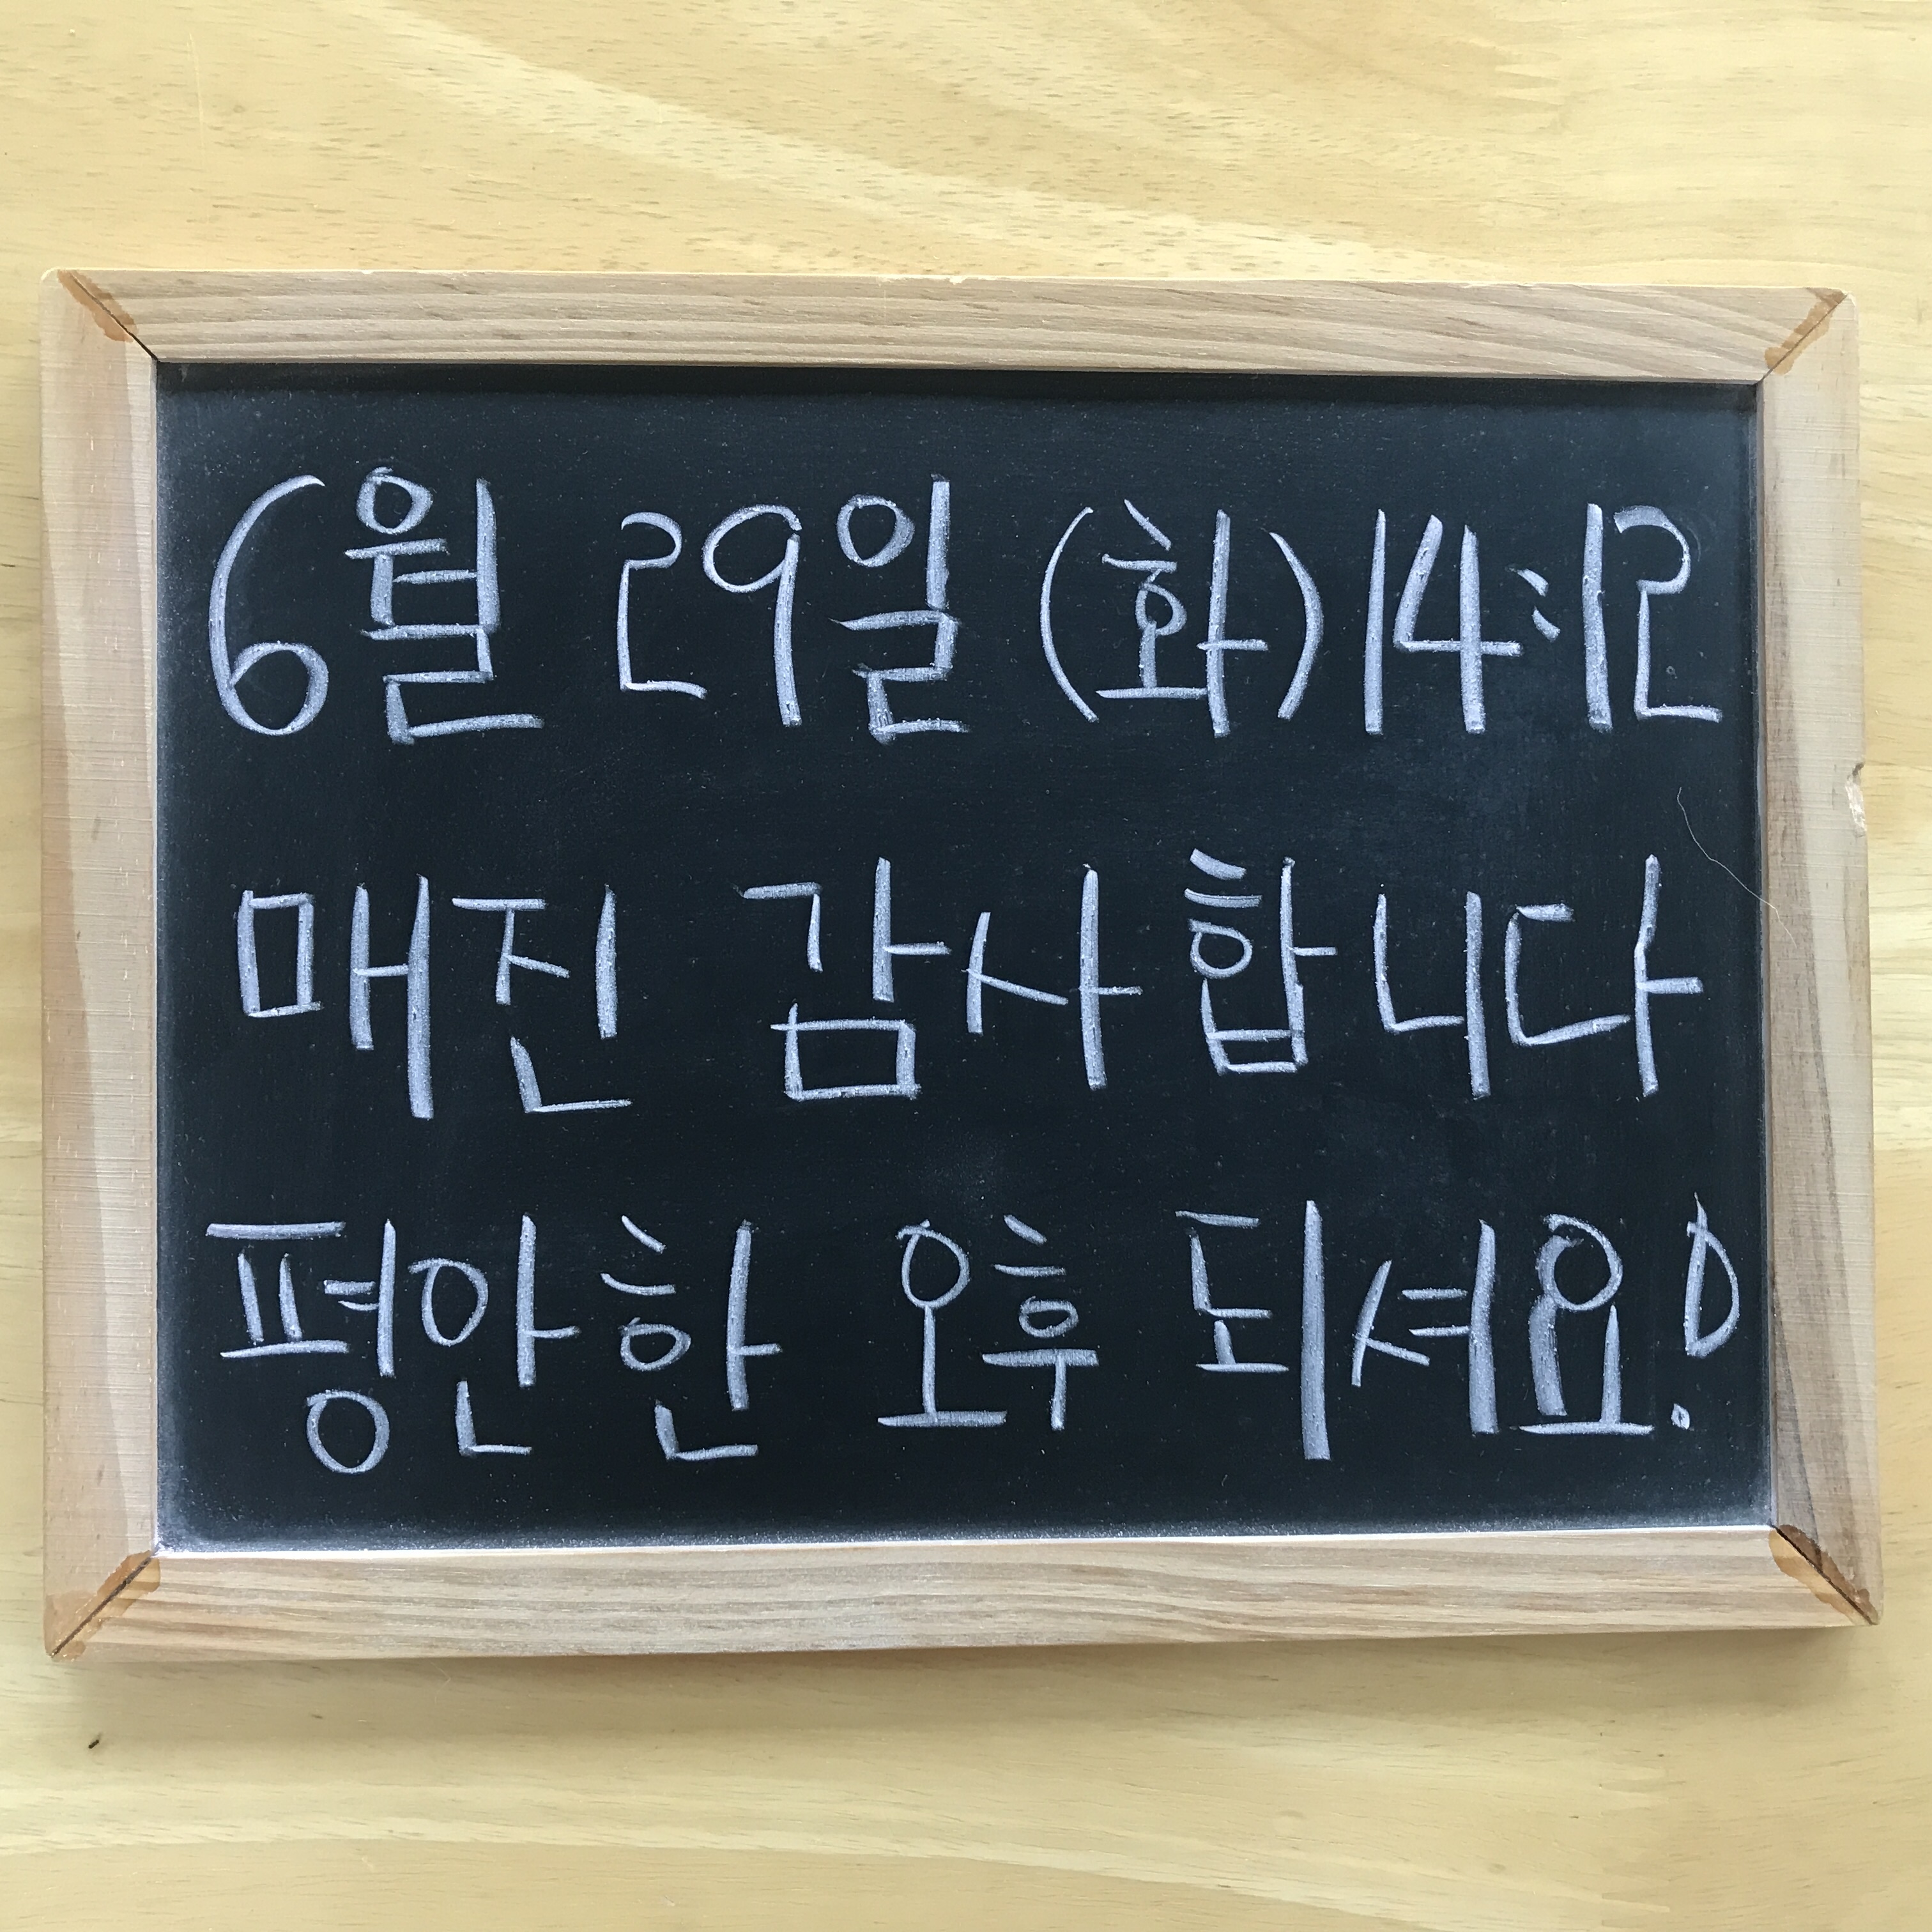 6월 29일 (화) 14:12
매진 감사합니다
평안한 오후 되셔요!